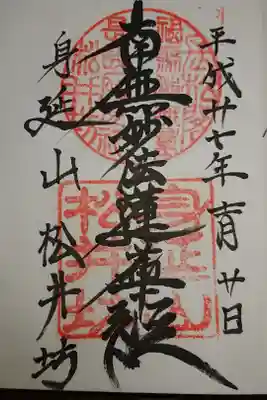 平成廿七年十一月廿日
南無妙法蓮華経
身延山松井坊